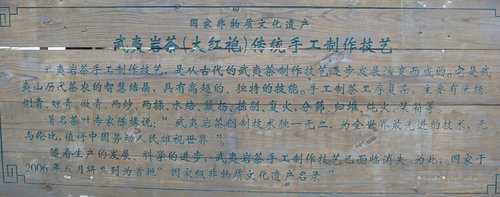 国家非物质文化遗产
武夷岩茶(大红袍)传统手工制作技艺
武夷岩茶手工制作技艺，是从古代的武夷茶制作技艺逐步发展演变而成的。它是武
夷山历代茶农的智慧结晶，具有高超的、独特的技能。手工制茶工序复杂，主要有采摘、
倒青、晾青、做青、两炒、两揉、水焙、簸扬、拣剔、复火、分筛、归堆、炖火、装箱等。
著名茶专家陈椽说，“武夷岩茶创制技术独一无二，为全世界最先进的技术，无
与伦比，值得中国劳动人民雄视世界”。
随着生产的发展，科学的进步，武夷岩茶手工制作技艺已面临消失，为此，国家于
2006年6月将其列为首批“国家级非物质文化遗产名录”